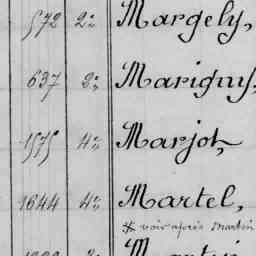 572 2º Margely,
637 2º Marigny,
1575 4º Marjot,
1644 4º Martel,
voir après Martin